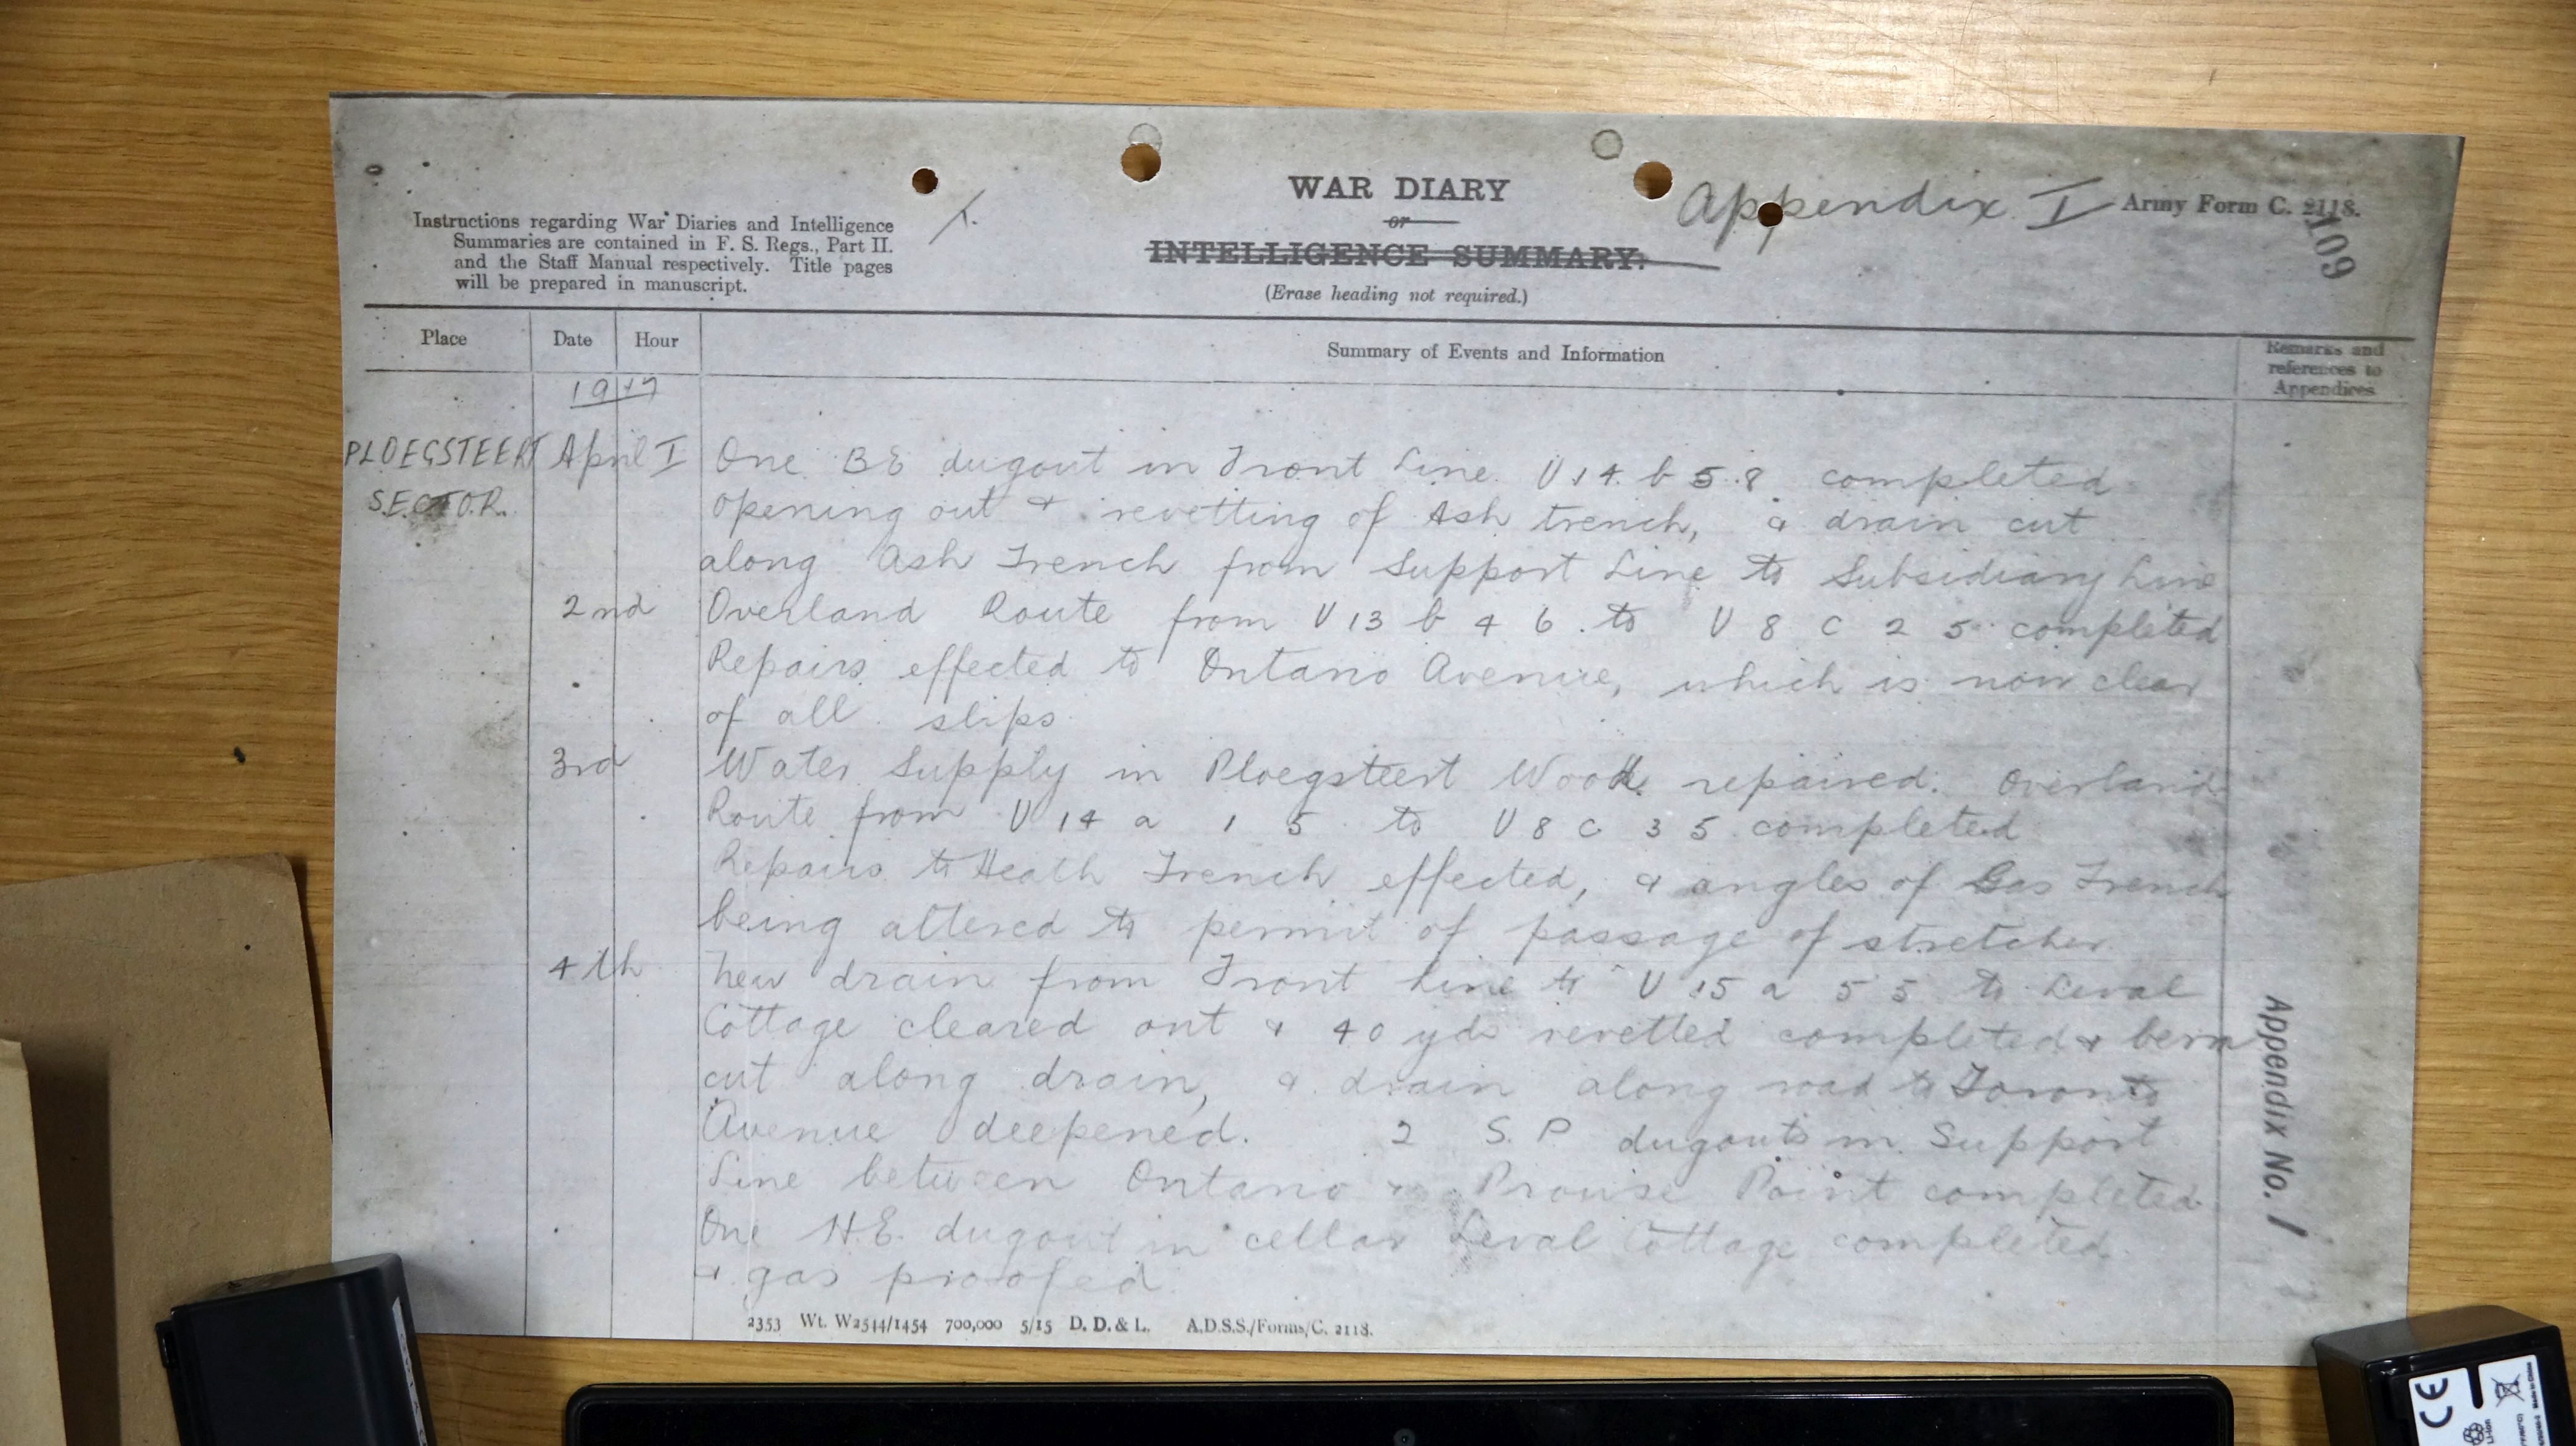 WAR DIARY
or
INTELLIGENCE SUMMARY.
(Erase heading not required.)
Appendix I
Army Form C. 2118.
109
Instructions regarding War Diaries and Intelligence
Summaries are contained in F. S. Regs., Part II.
and the Staff Manual respectively. Title pages
will be prepared in manuscript.
1.
Place Date Hour Summary of Events and Information Remarks and references to Appendices
1917
PLOEGSTEERT SECTOR.
April I One BE dugout in Front Line U 14. b 5.8 completed
opening out & revetting of Ash trench, & drain cut
along Ash Trench from Support Line to Subsidiary Line
2nd Overland Route from U 13 b 4 6. to U 8 C 2 5 completed
Repairs effected to Ontario Avenue, which is now clear
of all slips
3rd Water Supply in Ploegsteert Wood repaired. Overland
Route from U 14 a 1 5 to U 8 c 3 5 completed
Repairs to Heath Trench effected, & angles of Gas Trench
being altered to permit of passage of stretcher
4th New drain from Front Line to U 15 a 5 5 to Leval
Cottage cleared out & 40 yds revetted completed & berm
cut along drain, & drain along road to Toronto
Avenue deepened. 2 S. P. dugouts in Support
Line between Ontario Prowse Point completed
One H.E. dugout in cellar Leval Cottage completed
& gas proofed
Appendix No. 1
2353 Wt. W2544/1454 700,000 5/15 D. D. & L. A.D.S.S./Forms/C. 2118.
CE
Li-ion